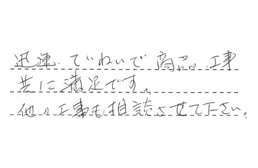 迅速、ていねいで商品、工事
共に満足です。
他の工事も相談させて下さい。